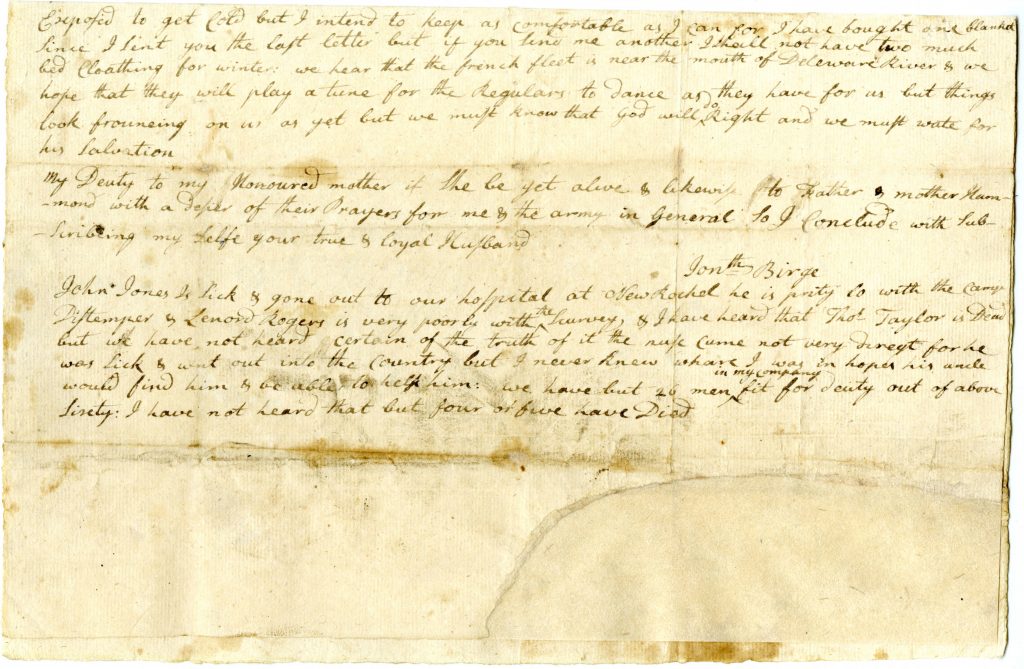 Exposed to get Cold but I intend to keep as comfortable as I can for I have bought one blanket
Since I Sint you the last letter but if you Send me another I shall not have two much
bed Cloathing for winter: we hear that the french fleet is near the mouth of Deleware River & we
hope that they will play a tune for the Regulars to dance as they have for us but things
look frouneing on us as yet but we must know that God will do Right and we must wate for
his Salvation
My Deuty to my Honoured mother if She be yet alive & likewise to Father & mother Ham-
-mond with a deser of their Prayers for me & the army in General So I Conclude with Sub-
-Scribeing my Selfe your true & loyal Husband
Jonth Birge
John Jones Is Sick & gone out to our hospital at New Rochel he is prity lo with the Camp
Distemper & Lenord Rogers is very poorly with the Scurvey, & I have heard that Thos Taylor is Dead
but we have not heard certain of the truth of it the nuse Came not very direqt for he
was Sick & wnt out into the Country but I never knew whare I was in hopes his uncle
would find him & be able to help him: we have but 26 men in my company fit for deuty out of above
Sixty: I have not heard that but four or five have Died